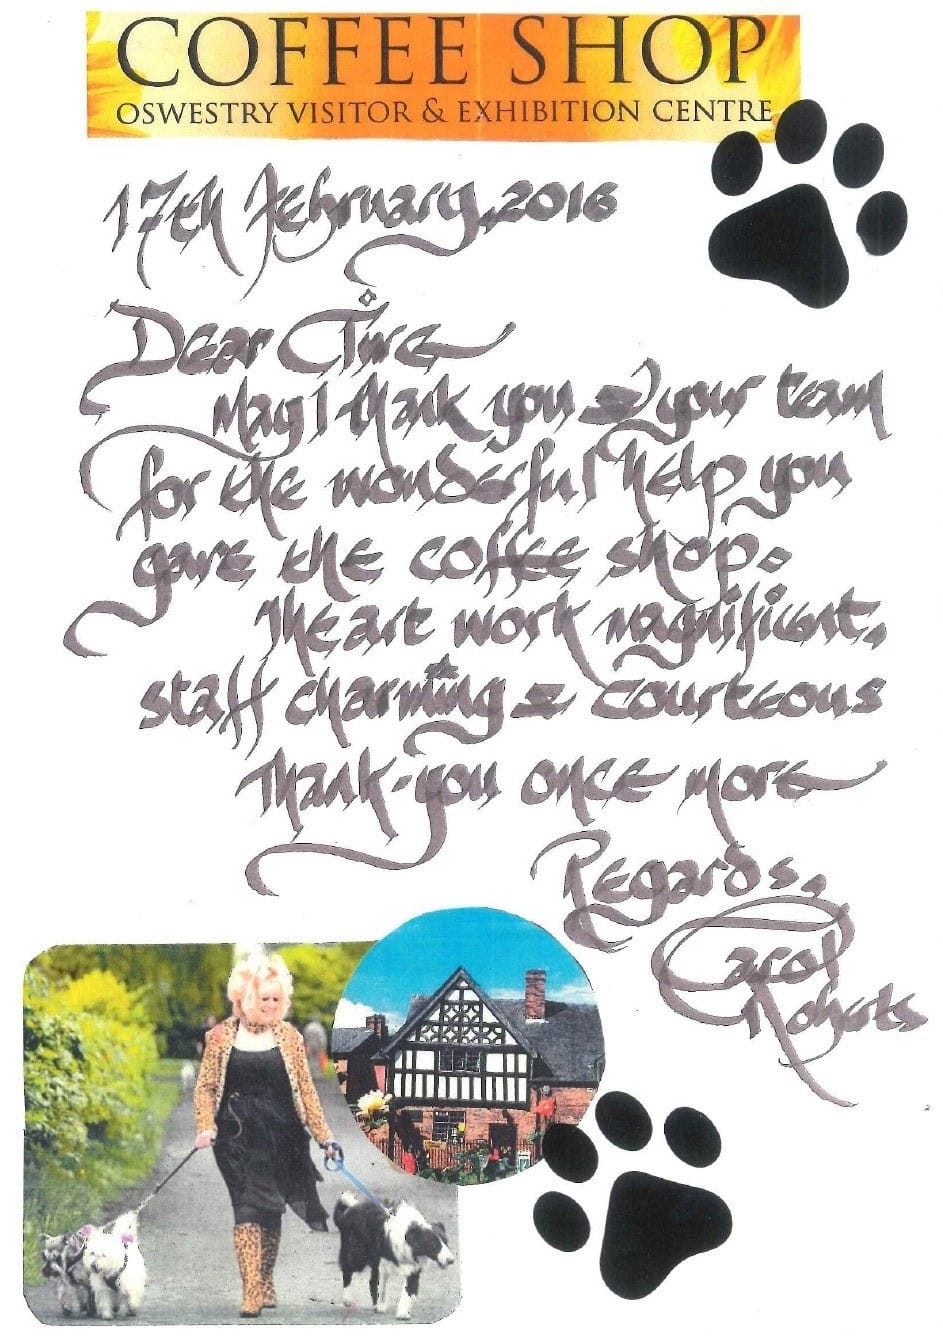 COFFEE SHOP
OSWESTRY VISITOR & EXHIBITION CENTRE
17th February, 2016
Dear Clive
May I thank you & your team
for the wonderful help you
gave the coffee shop.
The art work magnificent.
staff charming & courteous
Thank-you once more
Regards,
Carol
Roberts